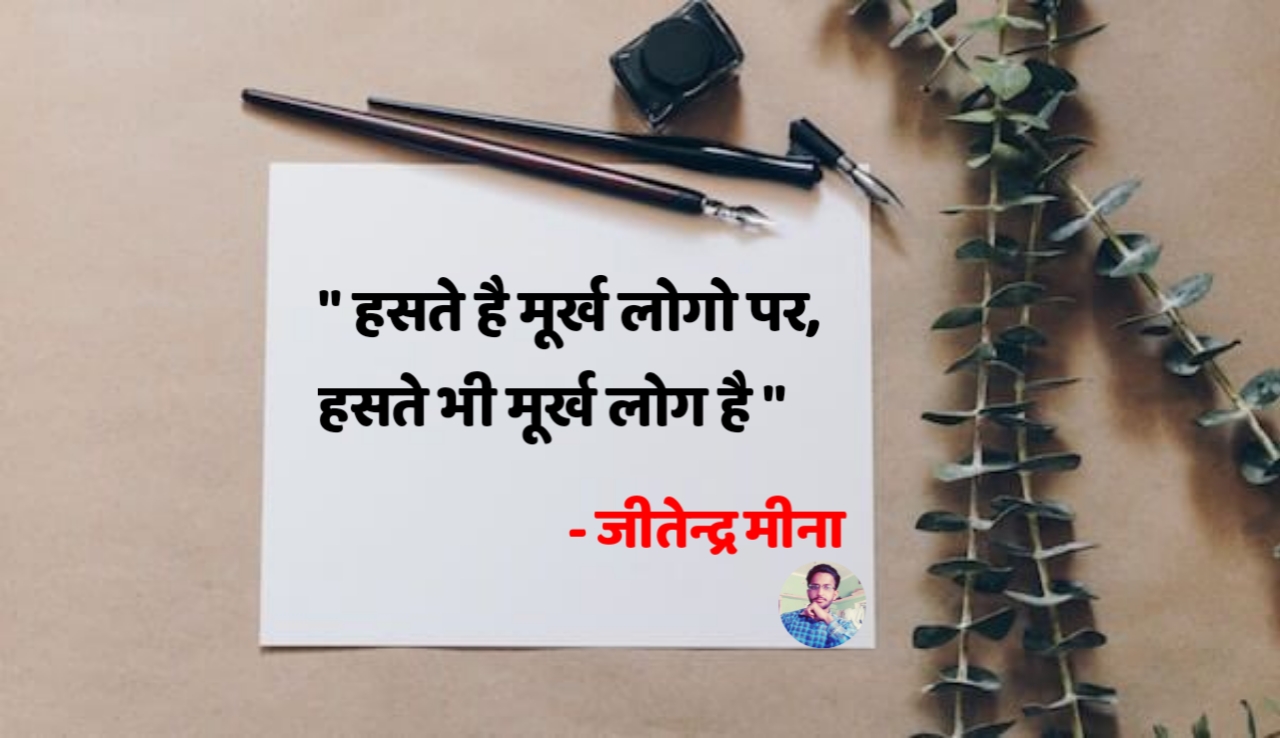 " हसते है मूर्ख लोगो पर,
हसते भी मूर्ख लोग है "
- जीतेन्द्र मीना